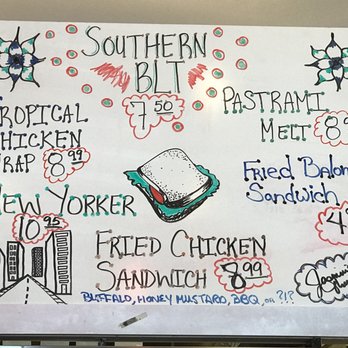 SOUTHERN
BLT
7.50
TROPICAL
CHICKEN
WRAP 8.99
PASTRAMI
MELT 8
Fried Balon
Sandwich
4
NEW YORKER
10.95
FRIED CHICKEN
SANDWICH 8.99
BUFFALO, HONEY MUSTARD, BBQ, OR ?!?